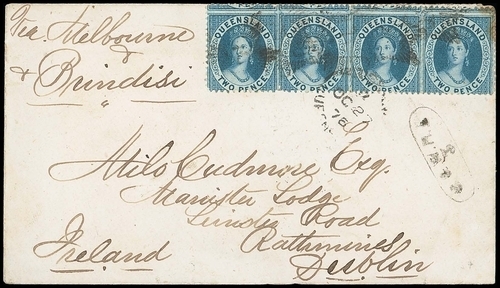 Via Melbourne
&
Brindisi
QUEENSLAND QUEENSLAND QUEENSLAND QUEENSLAND
TWO PENCE TWO PENCE TWO PENCE TWO PENCE
OC 2
76
Milo Cudmore Esq.
Manister Lodge
Leinster Road
Rathmines
Dublin
Ireland